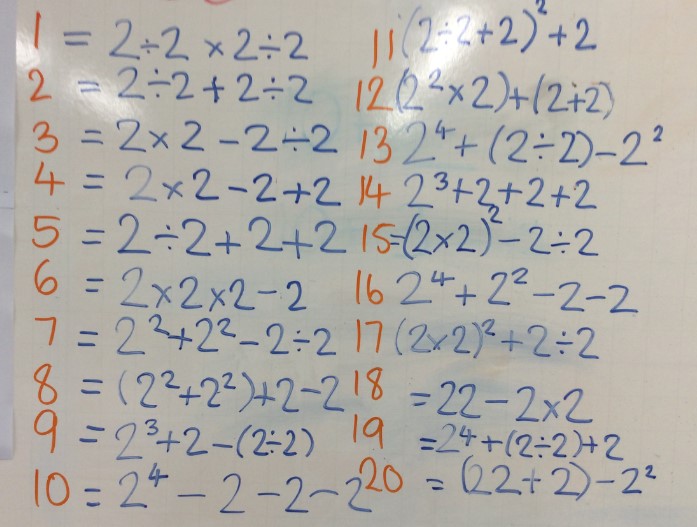 1 = 2÷2 × 2÷2
2 = 2÷2 + 2÷2
3 = 2×2 - 2÷2
4 = 2×2 - 2+2
5 = 2÷2+2+2
6 = 2×2×2-2
7 = 2²+2²-2÷2
8 = (2²+2²)+2-2
9 = 2³+2-(2÷2)
10 = 2⁴ - 2 - 2 - 2
11 (2÷2+2)²+2
12 (2²×2)+(2+2)
13 2⁴+(2÷2)-2²
14 2³+2+2+2
15=(2×2)²-2÷2
16 2⁴+2²-2-2
17 (2×2)²+2÷2
18 = 22-2×2
19 = 2⁴+(2÷2)+2
20 = (22+2)-2²